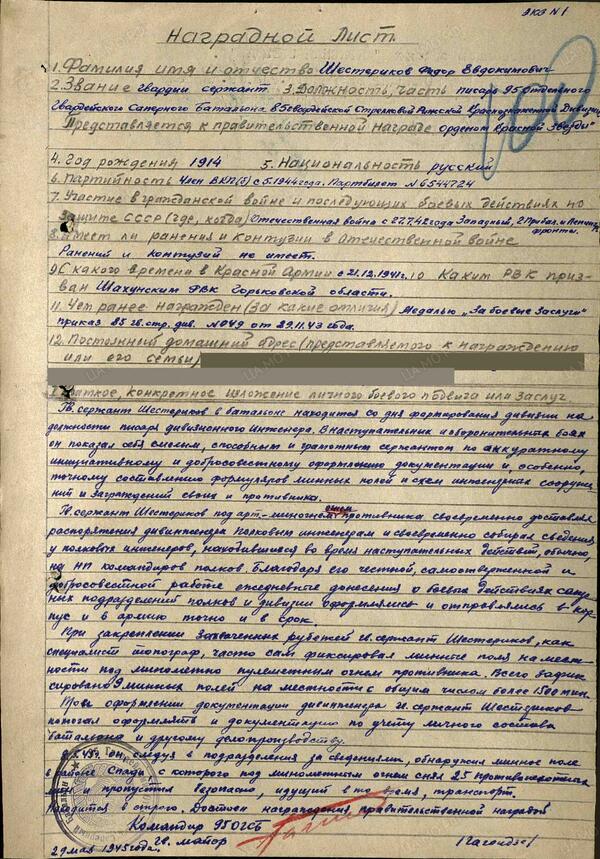 экз №1
Наградной Лист.
1. Фамилия имя и отчество Шестериков Федор Евдокимович
2. Звание гвардии сержант 3. Должность, часть писарь 95 Отдельного
Гвардейского Саперного Батальона 85 гвардейской Стрелковой Рижской Краснознаменной Дивизии
Представляется к правительственной награде орденом "Красной Звезды"
4. Год рождения 1914 5. Национальность русский
6. Партийность Член ВКП(б) с 5.1944 года. Партбилет №6544724
7. Участие в гражданской войне и последующих боевых действиях по
защите СССР (где, когда) Отечественная война с 27.7.42 года Западный, 2 Прибал. и Ленингр.
фронты.
8. Имеет ли ранения и контузии в Отечественной войне
Ранений и контузий не имеет.
9. С какого времени в Красной Армии с 21.12.1941г. 10 Каким РВК приз-
ван Шахунским РВК Горьковской области.
11. Чем ранее награжден (за какие отличия) Медалью „За боевые Заслуги"
приказ 85 гв. стр. див. №049 от 29.11.43 года.
12. Постоянный домашний адрес (представляемого к награждению
или его семьи)
Краткое, конкретное изложение личного боевого подвига или заслуг
Гв. сержант Шестериков в батальоне находится со дня формирования дивизии на
должности писаря дивизионного инженера. В наступательных и оборонительных боях
он показал себя смелым, способным и грамотным сержантом по аккуратному
инициативному и добросовестному оформлению документации и, особенно,
точному составлению формуляров минных полей и схем инженерных сооруже-
ний и заграждений своих и противника.
Гв. сержант Шестериков под арт-минометн огнем противника своевременно доставлял
распоряжения дивинженера полковым инженерам и своевременно собирал сведения
у полковых инженеров, находившихся во время наступательных действий, обычно,
на НП командиров полков. Благодаря его честной, самоотверженной и
добросовестной работе ежедневные донесения о боевых действиях сапер-
ных подразделений полков и дивизии оформлялись и отправлялись в кор-
пус и 6 армию точно и в срок.
При закреплении захваченных рубежей гв. сержант Шестериков, как
специалист топограф, часто сам фиксировал минные поля на мест-
ности под минометно пулеметным огнем противника. Всего зафик-
сировано 9 минных полей на местности с общим числом более 1500 мин
оформлении документации дивинженера гв. сержант Шестериков
помогал оформлять и документацию по учету личного состава
батальона и другому делопроизводству.
он, следуя в подразделения за сведениями, обнаружил минное поле
в районе с которого под минометным огнем снял 25 противопехотных
мин и пропустил безопасно, идущий в то время, транспорт.
Находится в строю. Достоин награждения, правительственной наградой
Командир 95 ОГСБ
гв. майор
29 мая 1945 года.